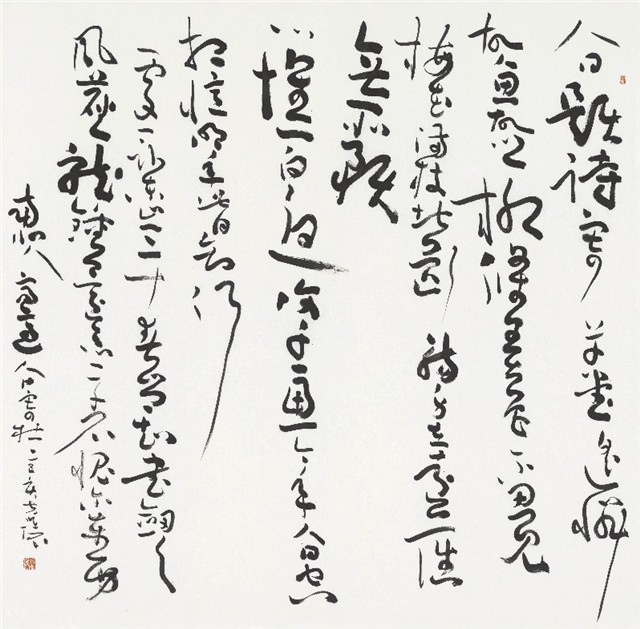 人日題詩寄草堂遙憐
故人思故鄉柳條弄色不忍見
梅花滿枝斷腸身在
無所預
心懷百憂復千慮今年人日空
相憶明年知何處
一臥東山三十春豈知書劍老
風塵龍鍾還忝二千石愧爾東西
南北人高適人日寄杜二